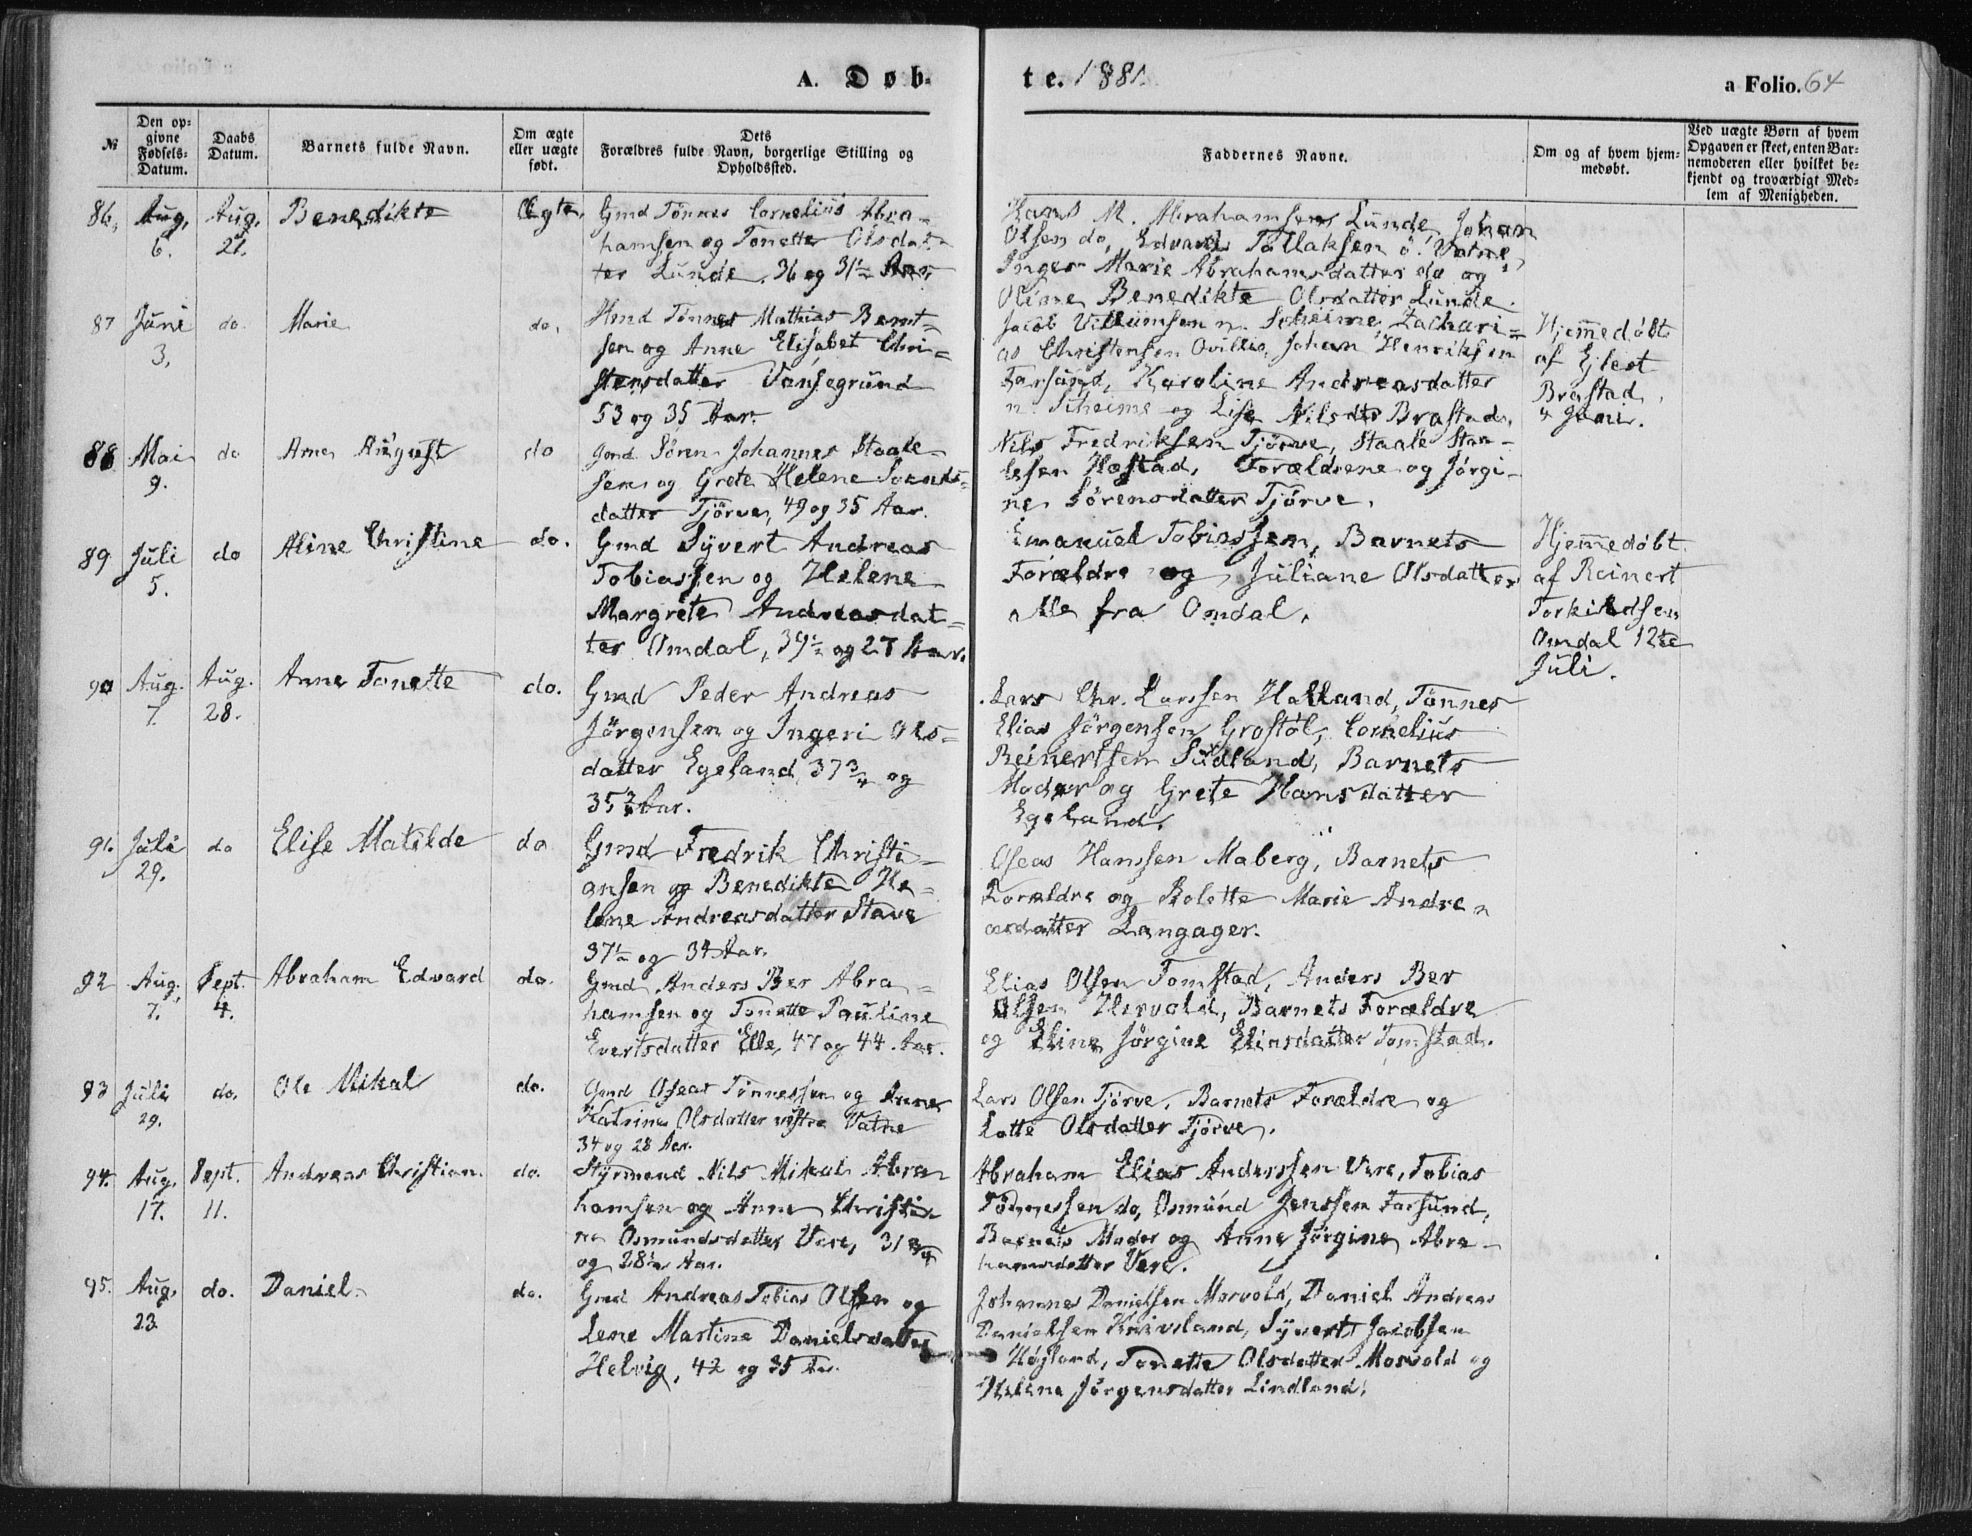 A. Døb-
te. 1881.
a Folio. 64
№
Den op-
givne
Fødsels-
Datum.
Daabs
Datum.
Barnets fulde Navn.
Om ægte
eller uægte
født.
Dets
Forældres fulde Navn, borgerlige Stilling og
Opholdssted.
Faddernes Navne.
Om og af hvem hjem-
medøbt.
Ved uægte Børn af hvem
Opgaven er skeet, enten Bar-
nemoderen eller hvilket be-
kjendt og troværdigt Med-
lem af Menigheden.
86. Aug. 6. Aug. 21. Benedikte Ægte
Gmd Tönnes Cornelius Abra-
hamsen og Tonette Olsdat-
ter Lunde. 36 og 31½ Aar.
Hans M. Abrahamsen, Lunde, Johan
Olsen do, Edvard Tallaksen ö. Vatne,
Inger Marie Abrahamsdatter do og
Oline Benedikte Olsdatter Lunde.
87 Juni 3, do. Marie do,
Hmd Tönnes Mathias Bernt-
sen og Anne Elisabet Chri-
stensdatter Vansegrund
53 og 35 Aar.
Jacob Villumsen n. Scheime, Zachari-
as Christensen Ovillie, Johan Henriksen
Farsund, Karoline Andreasdatter
n. Scheime og Lise Nilsdtr Brastad.
Hjemmedöbt
af Giert
Brastad,
4 Juni.
88 Mai 9. do Arne August do
Gmd Sören Johannes Staale-
sen og Grete Helene Svends-
datter Tjörve, 49 og 35 Aar.
Nils Fredriksen Tjörve, Staale Staa-
lesen Hastad, Forældrene og Jörgi-
ne Sörensdatter Tjörve.
89 Juli 5. do Aline Christine do.
Gmd Syvert Andreas
Tobiassen og Helene
Margrete Andreasdat-
ter Omdal, 39½ og 27 Aar.
Emanuel Tobiassen, Barnets
Forældre og Juliane Olsdatter
alle fra Omdal.
Hjemmedöbt
af Reinert
Torkildsen
Omdal 12te
Juli.
90 Aug. 7. Aug. 28. Anne Tonette do.
Gmd Peder Andreas
Jörgensen og Ingeri Ols-
datter Egeland, 37¾ og
35¾ Aar.
Lars Chr. Larssen Halland, Tönnes
Elias Jörgensen Grostöl, Cornelius
Reinertsen Sudland, Barnets
Moder og Grete Hansdatter
Egeland.
91. Juli 29. do Elise Matilde do
Gmd Fredrik Christi-
ansen og Benedikte He-
lene Andreasdatter Stave
37½ og 34 Aar.
Oseas Hanssen Maberg, Barnets
Forældre og Bolette Marie Andre-
asdatter Langager.
92 Aug. 7. Sept. 4. Abraham Edvard do.
Gmd Anders Ber Abra-
hamsen og Tonette Pauline
Evertsdatter Elle, 47 og 44 Aar.
Elias Olsen Tomstad, Anders Ber
Olsen Hervold, Barnets Forældre
og Eline Jörgine Eliasdatter Tomstad.
93 Juli 29. do. Ole Mikal do.
Gmd Oseas Tönnessen og Anne
Katrine Olsdatter vestre Vatne
34 og 28 Aar.
Lars Olsen Tjörve, Barnets Forældre og
Lotte Olsdatter Tjörve.
94. Aug. 17. Sept. 11. Andreas Christian. do.
Styrmand Nils Mikal Abra-
hamsen og Anne Christi-
ne Osmundsdatter Vere, 31¾
og 28½ Aar.
Abraham Elias Anderssen Vere, Tobias
Tönnessen do, Osmund Jenssen Farsund,
Barnets Moder og Anne Jörgine Abra-
hamsdatter Vere.
95. Aug. 23 do. Daniel do.
Gmd Andreas Tobias Olsen og
Lene Martine Danielsdatter
Helvig, 42 og 35 Aar.
Johannes Danielsen Morvold, Daniel Andreas
Danielsen Knivsland, Syvert Jacobsen
Höjland, Tonette Olsdatter Morvold og
Helene Jörgensdatter Lindland.